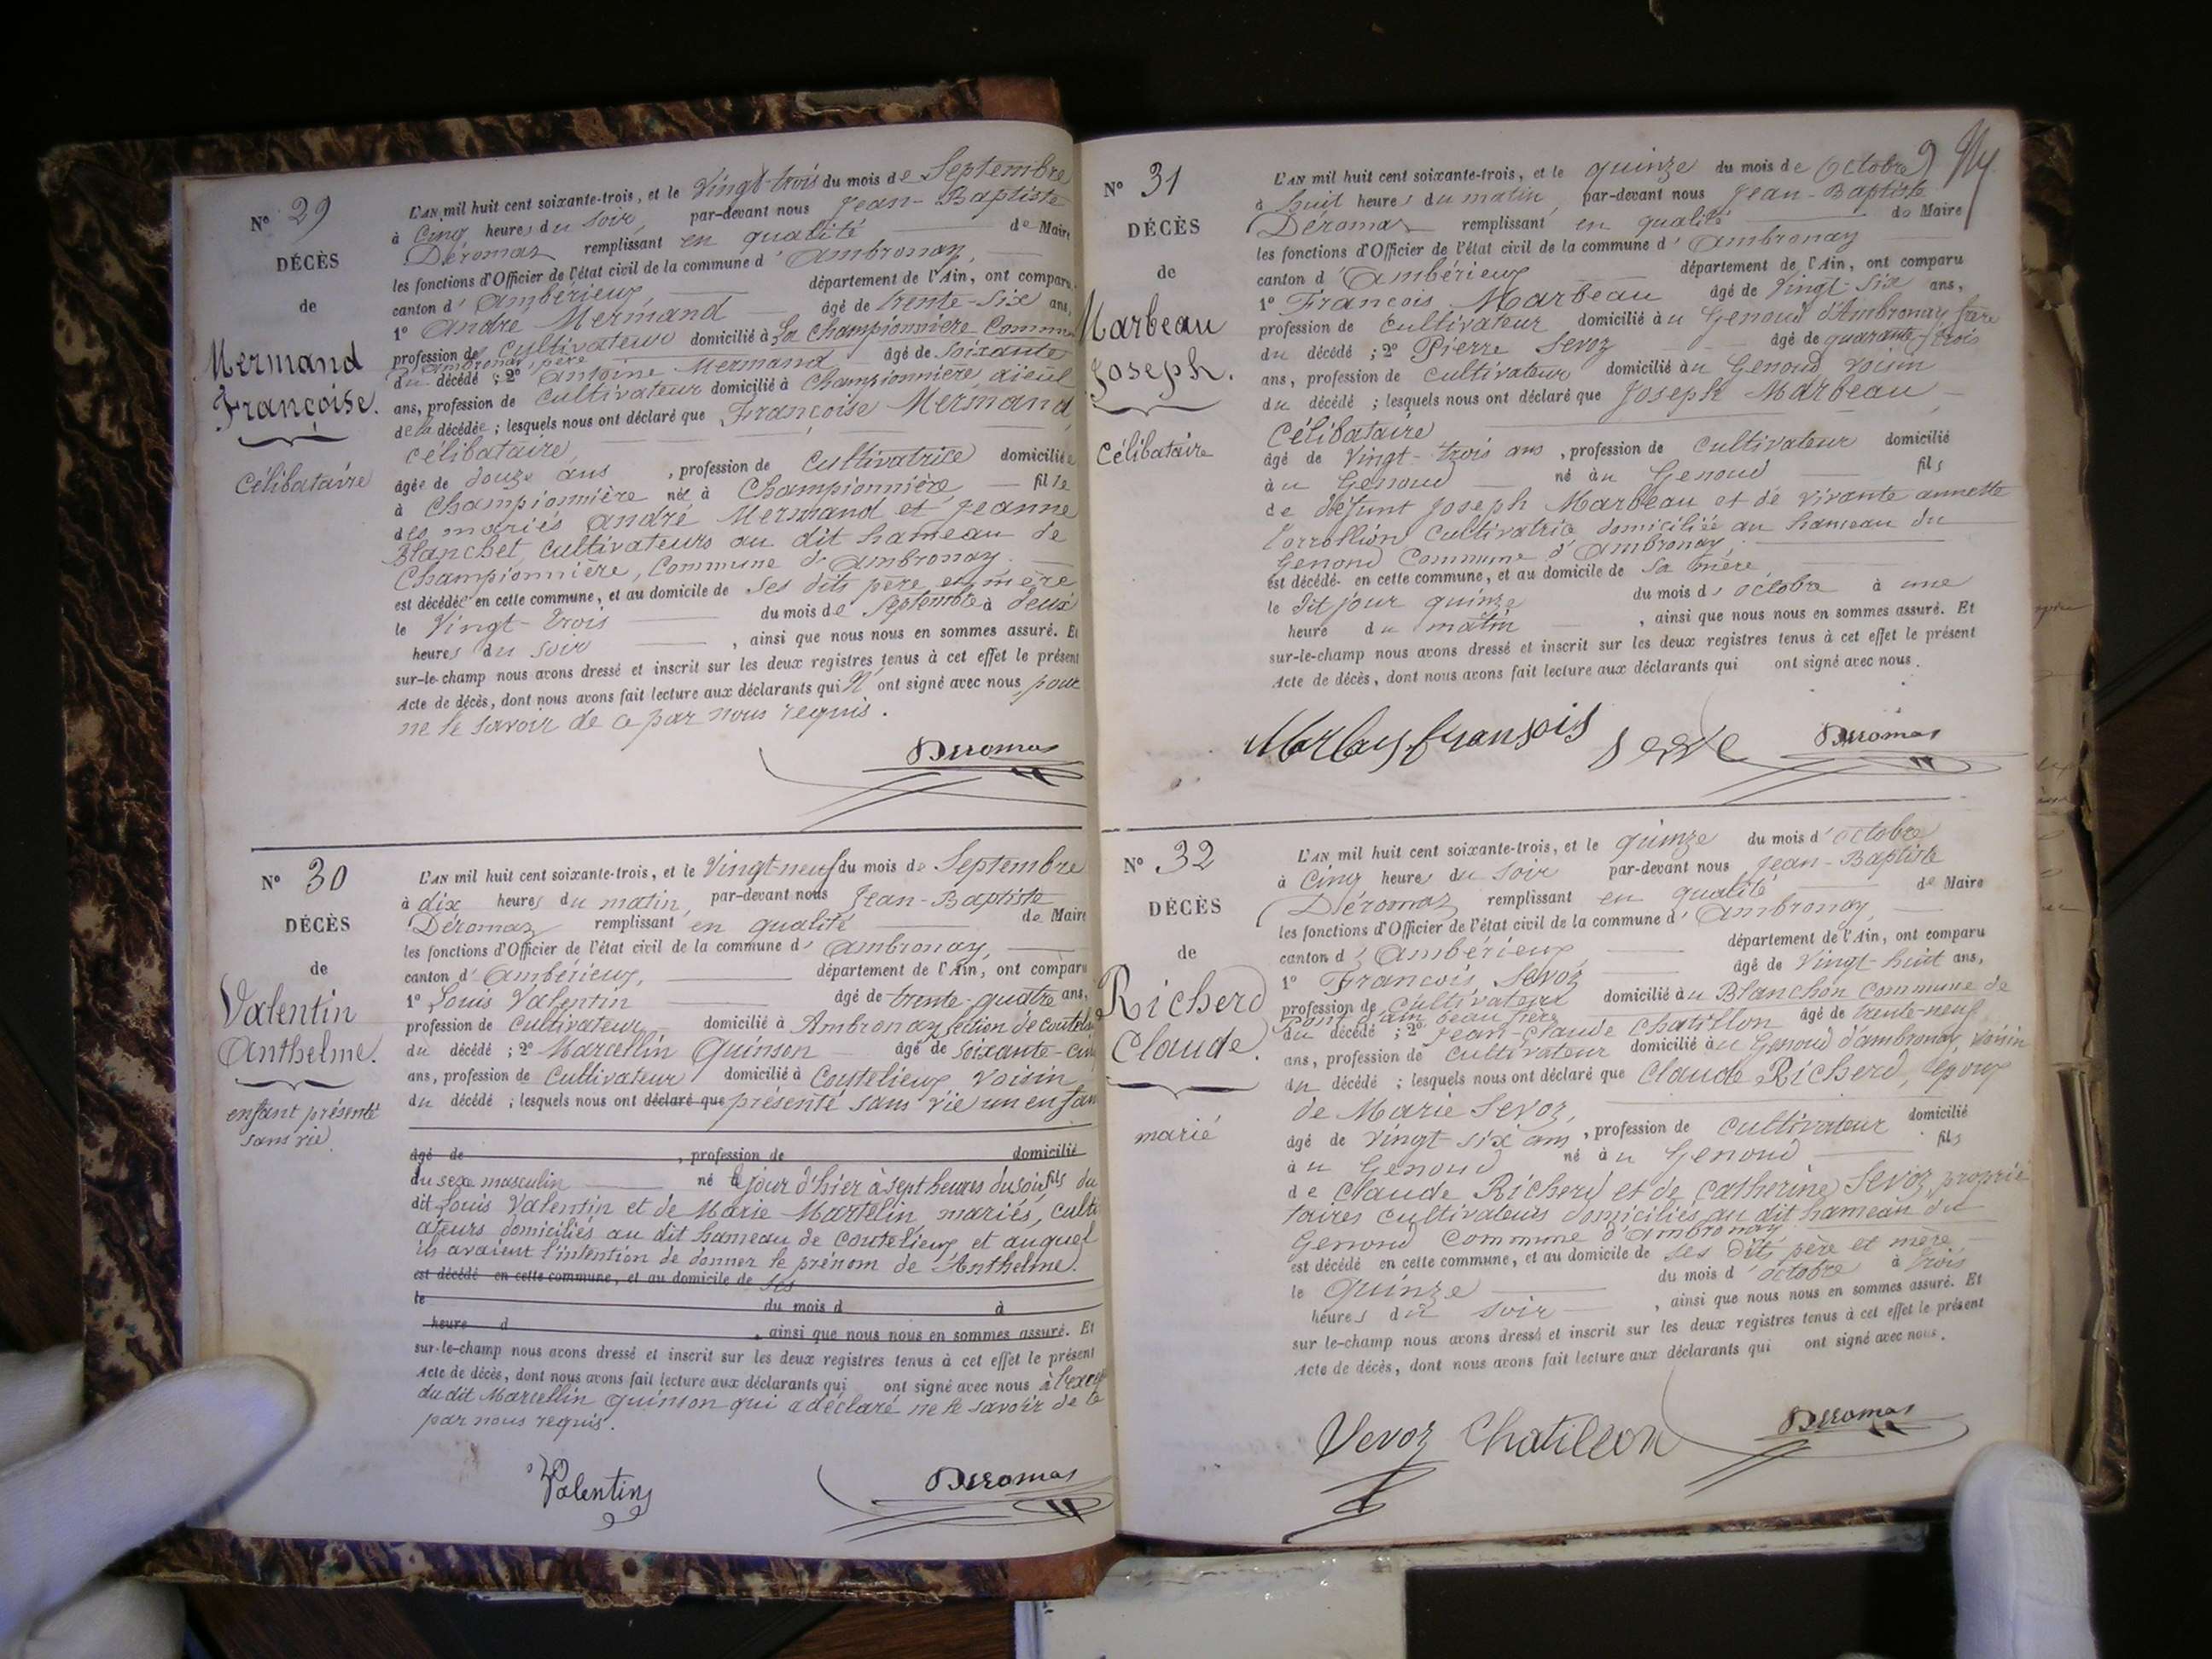 N° 29
DÉCÈS
de
Mermand
Françoise.
célibataire
L'AN mil huit cent soixante-trois, et le Vingt-trois du mois de Septembre
à Cinq heures du soir, par-devant nous Jean-Baptiste
Déromas remplissant en qualité de Maire
les fonctions d'Officier de l'état civil de la commune d'Ambronay,
canton d'Ambérieux, département de l'Ain, ont comparu
1° André Mermand âgé de trente-six ans,
profession de Cultivateur domicilié à La Championnière Commune
d'ambronay, père
du décédé ; 2° Antoine Mermand âgé de soixante
ans, profession de Cultivateur domicilié à Championnière, aïeul
de la décédée ; lesquels nous ont déclaré que Françoise Mermand,
célibataire,
âgée de douze ans, profession de Cultivatrice domiciliée
à Championnière née à Championnière, fille
des mariés André Mermand et Jeanne
Blanchet, cultivateurs au dit hameau de
Championnière, Commune d'Ambronay.
est décédée en cette commune, et au domicile de ses dits père et mère
le Vingt-trois du mois de Septembre à deux
heures du soir, ainsi que nous nous en sommes assuré. Et
sur-le-champ nous avons dressé et inscrit sur les deux registres tenus à cet effet le présent
Acte de décès, dont nous avons fait lecture aux déclarants qui N'ont signé avec nous, pour
ne le savoir de ce par nous requis.
Deromas
N° 30
DÉCÈS
de
Valentin
Anthelme.
enfant présenté
sans vie
L'AN mil huit cent soixante-trois, et le Vingt-neuf du mois de Septembre
à dix heures du matin, par-devant nous Jean-Baptiste
Déromas remplissant en qualité de Maire
les fonctions d'Officier de l'état civil de la commune d'Ambronay,
canton d'Ambérieux, département de l'Ain, ont comparu
1° Louis Valentin âgé de trente-quatre ans,
profession de Cultivateur domicilié à Ambronay, section de
du décédé ; 2° Marcellin Quinson âgé de soixante-cinq
ans, profession de Cultivateur domicilié à Coutelieux, voisin
du décédé ; lesquels nous ont déclaré que présenté sans vie un enfan
âgé de , profession de domicilié
du sexe masculin né le jour d'hier à sept heures du soir fils du
dit Louis Valentin et de Marie Martelin, mariés, culti
ateurs domiciliés au dit hameau de coutelieux et auquel
ils avaient l'intention de donner le prénom de Anthelme.
est décédé en cette commune, et au domicile de ses
le du mois d à
heure d , ainsi que nous nous en sommes assuré. Et
sur-le-champ nous avons dressé et inscrit sur les deux registres tenus à cet effet le présent
Acte de décès, dont nous avons fait lecture aux déclarants qui ont signé avec nous à
du dit Marcellin Quinson qui a déclaré ne le savoir de ce
par nous requis.
Valentin
Deromas
N° 31
DÉCÈS
de
Marbeau
Joseph.
célibataire
L'AN mil huit cent soixante-trois, et le quinze du mois de Octobre
à huit heures du matin, par-devant nous Jean-Baptiste
Déromas remplissant en qualité de Maire
les fonctions d'Officier de l'état civil de la commune d'Ambronay
canton d'Ambérieux département de l'Ain, ont comparu
1° François Marbeau âgé de Vingt-six ans,
profession de Cultivateur domicilié au Genoud d'Ambronay frère
du décédé ; 2° Pierre Sevoz âgé de quarante-trois
ans, profession de Cultivateur domicilié au Genoud voisin
du décédé ; lesquels nous ont déclaré que Joseph Marbeau
Célibataire
âgé de Vingt-trois ans, profession de Cultivateur domicilié
au Genoud né au Genoud fils
de défunt Joseph Marbeau et de vivante annette
cultivatrice domiciliée au hameau du
Genoud Commune d'Ambronay,
est décédé en cette commune, et au domicile de sa mère
le dit jour quinze du mois d'octobre à une
heure du matin, ainsi que nous nous en sommes assuré. Et
sur-le-champ nous avons dressé et inscrit sur les deux registres tenus à cet effet le présent
Acte de décès, dont nous avons fait lecture aux déclarants qui ont signé avec nous.
françois
Deromas
N° 32
DÉCÈS
de
Richerd
Claude.
marié
L'AN mil huit cent soixante-trois, et le quinze du mois d'octobre
à Cinq heures du soir par-devant nous Jean-Baptiste
Déromas remplissant en qualité de Maire
les fonctions d'Officier de l'état civil de la commune d'Ambronay,
canton d'Ambérieux, département de l'Ain, ont comparu
1° François Sevoz âgé de Vingt-huit ans,
profession de Cultivateur domicilié au Blanchon commune de
Pont d'ain beau frère
du décédé ; 2° Jean-Claude Chatillon âgé de trente-neuf
ans, profession de cultivateur domicilié au Genoud d'ambronay voisin
du décédé ; lesquels nous ont déclaré que Claude Richerd, époux
de Marie Sevoz,
âgé de Vingt-six ans, profession de Cultivateur domicilié
au Genoud né au Genoud fils
de Claude Richerd et de Catherine Sevoz, proprié
taires cultivateurs domiciliés au dit hameau du
Genoud Commune d'Ambronay
est décédé en cette commune, et au domicile de ses dits père et mère
le Quinze du mois d'octobre à trois
heures du soir, ainsi que nous nous en sommes assuré. Et
sur le-champ nous avons dressé et inscrit sur les deux registres tenus à cet effet le présent
Acte de décès, dont nous avons fait lecture aux déclarants qui ont signé avec nous.
Sevoz Chatillon
Deromas